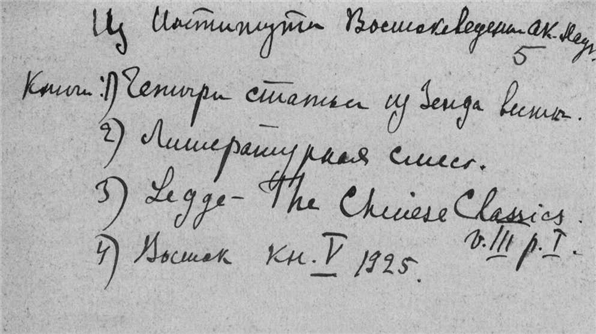 Из Института Востоковедения Ак. Наук.
5
Книги: 1) Четыри статьи из Зенда весты.
2) Литературная смесь.
3) Legge - The Chinese Classics.
v. III p. I.
4) Восток кн. V 1925.